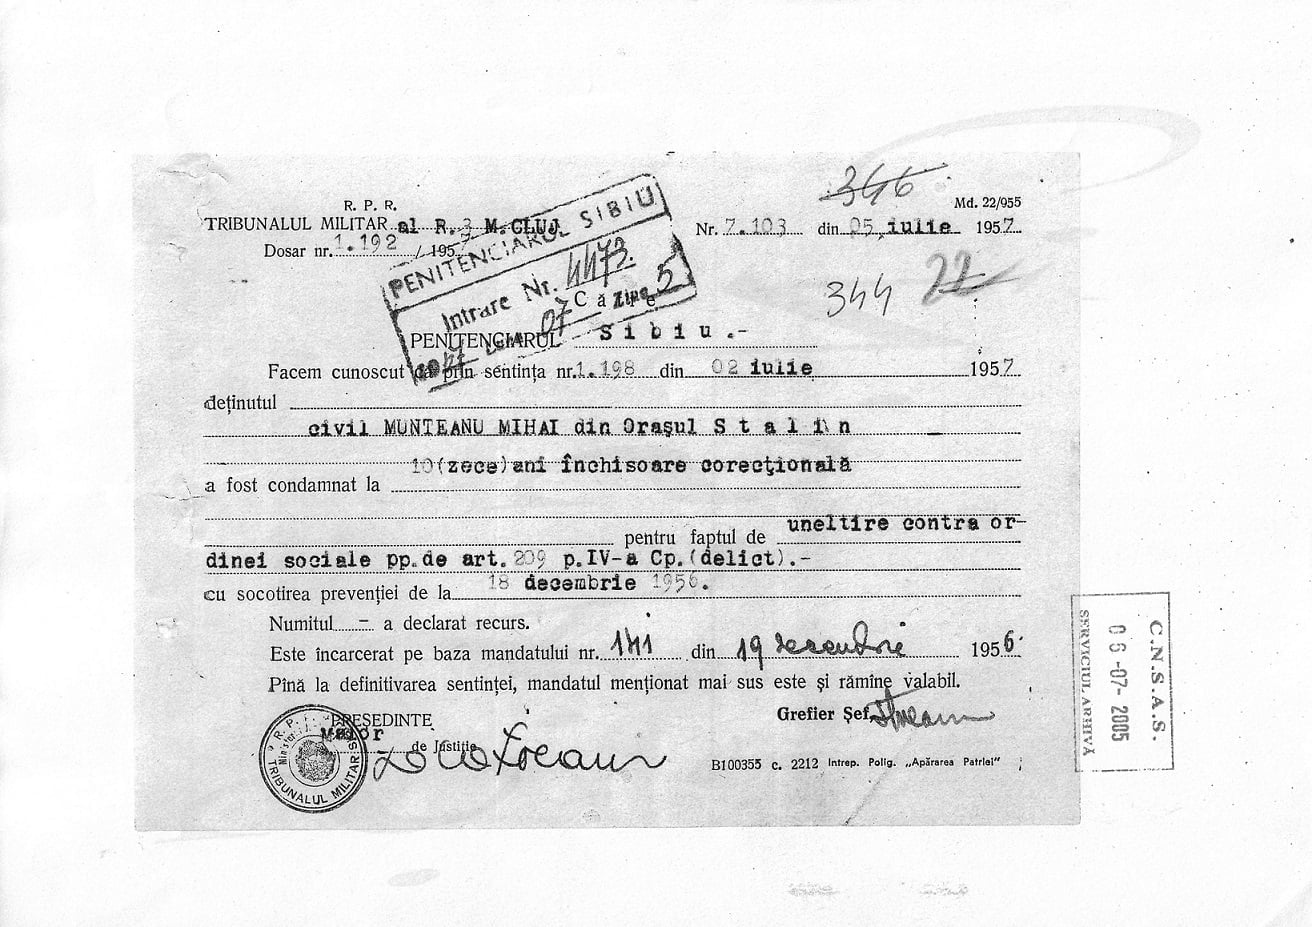 346
Md. 22/955
R. P. R.
TRIBUNALUL MILITAR al R. 3 M. CLUJ
Nr. 7.103 din 05 iulie 1957
Dosar nr. 1.192 / 1957
PENITENCIARUL SIBIU
Intrare Nr. 4473
07 Ziua 5
344 22
Către
PENITENCIARUL Sibiu.-
Facem cunoscut că prin sentința nr. 1.198 din 02 iulie 1957
deținutul
civil MUNTEANU MIHAI din Orașul Stalin
10(zece)ani închisoare corecțională
a fost condamnat la
pentru faptul de uneltire contra or-
dinei sociale pp.de art.209 p.IV-a Cp.(delict).-
cu socotirea prevenției de la 18 decembrie 1956.
Numitul - a declarat recurs.
Este încarcerat pe baza mandatului nr. 141 din 19 decembrie 1956.
Pînă la definitivarea sentinței, mandatul menționat mai sus este și rămîne valabil.
PREȘEDINTE
Maior
de Justiție
Grefier Șef
B100355 c. 2212 Intrep. Polig. „Apărarea Patriei"
R. P. R.
TRIBUNALUL MILITAR
C.N.S.A.S.
06-07-2005
SERVICIUL ARHIVĂ